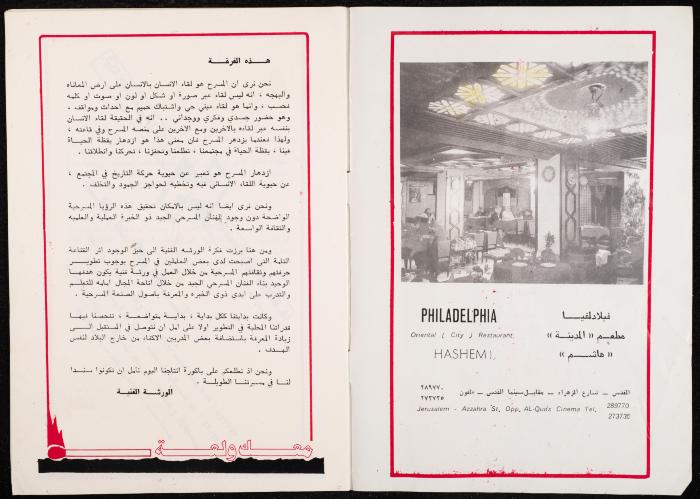 هذه الفرقة
نحن نرى ان المسرح هو لقاء الانسان بالانسان على ارض المعاناه
والبهجه ، انه ليس لقاء عبر صورة او شكل او لون او صوت او كلمه
فحسب ، وانما هو لقاء عيني حي واشتباك حميم مع احداث ومواقف ،
وهو حضور جسدي وفكري ووجداني .. انه في الحقيقة لقاء الانسان
بنفسه عبر لقاءه بالاخرين ومع الاخرين على منصه المسرح وفي قاعته ،
ولهذا فعندما يزدهر المسرح فان معنى هذا هو ازدهار يقظة الحياة
فينا ، يقظة الحياة في مجتمعنا ، تطلعنا وتحفزنا ، تحركنا وانطلاقنا .
ازدهار المسرح هو تعبير عن حيوية حركة التاريخ في المجتمع ،
عن حيوية اللقاء الانساني فيه وتخطيه لحواجز الجمود والتخلف .
ونحن نرى ايضا انه ليس بالامكان تحقيق هذه الرؤيا المسرحية
الواضحة دون وجود الفنان المسرحي الجيد ذو الخبرة العملية والعلميه
والثقافة الواسعة .
ومن هنا برزت فكرة الورشه الفنية الى حيز الوجود اثر القناعة
التامة التي اصبحت لدى بعض العاملين في المسرح بوجوب تطوير
حرفتهم وثقافتهم المسرحية من خلال العمل في ورشة فنية يكون هدفها
الوحيد بناء الفنان المسرحي الجيد من خلال اتاحة المجال امامه للتعلم
والتدرب على ايدي ذوى الخبره والمعرفة باصول الصنعة المسرحية .
وكانت بدايتنا ككل بداية ، بداية متواضعة ، تفحصنا فيها
قدراتنا المحلية في التطوير اولا على امل ان نتوصل في المستقبل الى
زيادة المعرفة باستضافة بعض المدربين الاكفاء من خارج البلاد لنفس
الهدف .
ونحن اذ نطلعكم على باكورة انتاجنا اليوم نأمل ان تكونوا سندا
لنا في مسيرتنا الطويلة .
الورشة الفنية
PHILADELPHIA
Oriental ( City ) Restaurant,
HASHEM I.
فيلادلفيا
مطعم « المدينة »
« هاشم »
القدس – شارع الزهراء – مقابل سينما القدس – تلفون
٢٨٩٧٧٠
٢٧٣٧٣٥
Jerusalem - Azzahra St, Opp, AL-Quds Cinema Tel,
289770
273735